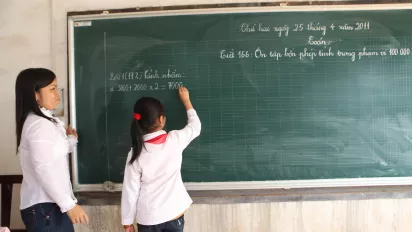 Thứ hai ngày 25 tháng 4 năm 2011
Toán:
Tiết 156: Ôn tập bốn phép tính trong phạm vi 100 000
Bài 1 (172) Tính nhẩm
a. 3000 + 2000 x 2 = 7000